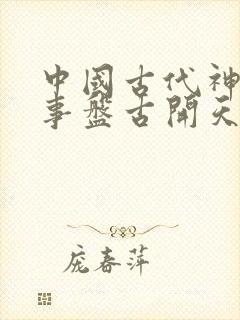 中國古代神
事盤古開天
庞春萍